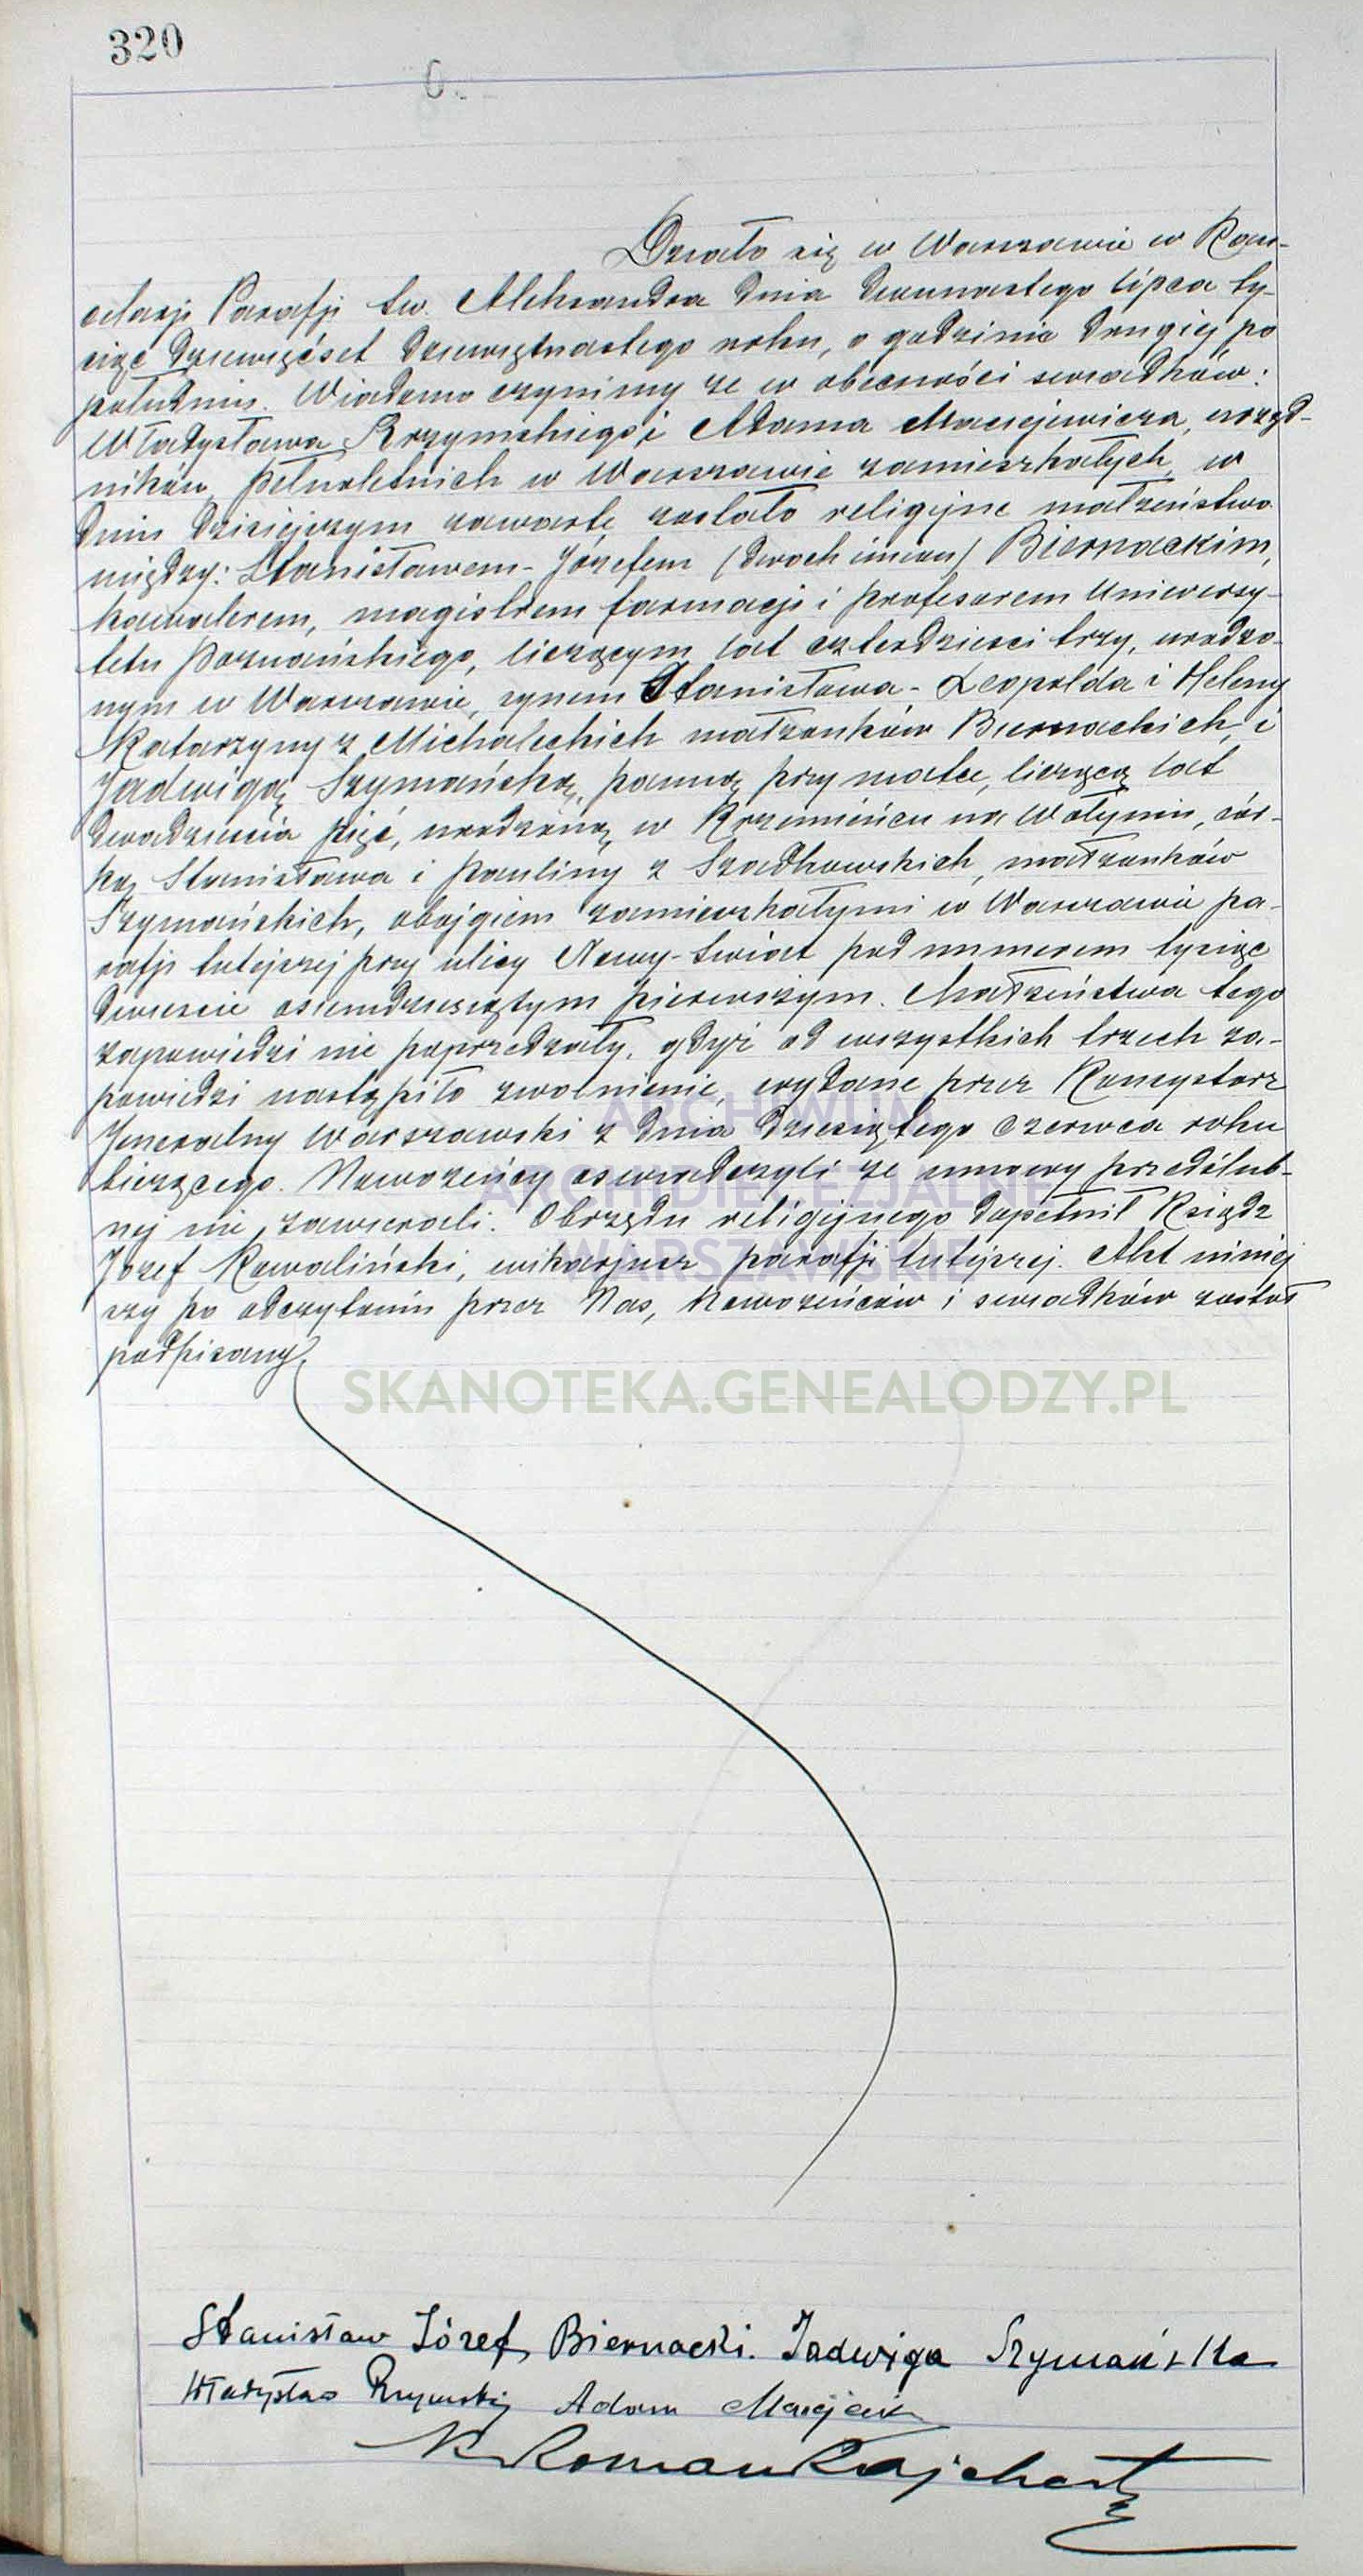 320
Działo się w Warszawie w Kan-
celarji Parafji Św. Aleksandra dnia dwunastego lipca ty-
siąc dziewięćset dziewiętnastego roku, o godzinie drugiej po
południu. Wiadomo czynimy że w obecności świadków:
Władysława Rzymskiego i Adama Maciejewicza, urzęd-
ników, pełnoletnich w Warszawie zamieszkałych, w
dniu dzisiejszym zawarte zostało religijne małżeństwo
między: Stanisławem-Józefem (dwoch imion) Biernackim,
kawalerem, magistrem farmacji i profesorem Uniwersy-
tetu Poznańskiego, liczącym lat czterdzieści trzy, urodzo-
nym w Warszawie, synem Stanisława-Leopolda i Heleny
Katarzyny z Michaleckich małżonków Biernackich, i
Jadwigą Szymańską, panną przy matce, liczącą lat
dwadzieścia pięć, urodzoną w Krzemieńcu na Wołyniu, cór-
ką Stanisława i Pauliny z Szadkowskich, małżonków
Szymańskich, obojgiem zamieszkałymi w Warszawie pa-
rafji tutejszej przy ulicy Nowy-Świat pod numerem tysiąc
dwieście osiemdziesiątym pierwszym. Małżeństwa tego
zapowiedzi nie poprzedzały, gdyż od wszystkich trzech za-
powiedzi nastąpiło zwolnienie, wydane przez Konsystorz
Jeneralny Warszawski z dnia dziesiątego czerwca roku
bieżącego. Nowożeńcy oświadczyli że umowy przedślub-
nej nie zawierali. Obrzędu religijnego dopełnił Ksiądz
Józef Kowaliński, wikarjusz parafji tutejszej. Akt niniej
szy po odczytaniu przez Nas, Nowożeńców i świadków został
podpisany
ARCHIWUM
ARCHIDIECEZJALNE
WARSZAWSKIE
SKANOTEKA.GENEALODZY.PL
Stanisław Józef Biernacki. Jadwiga Szymańska
Władysław Rzymski Adam Maciejewicz
X Roman Rajchert